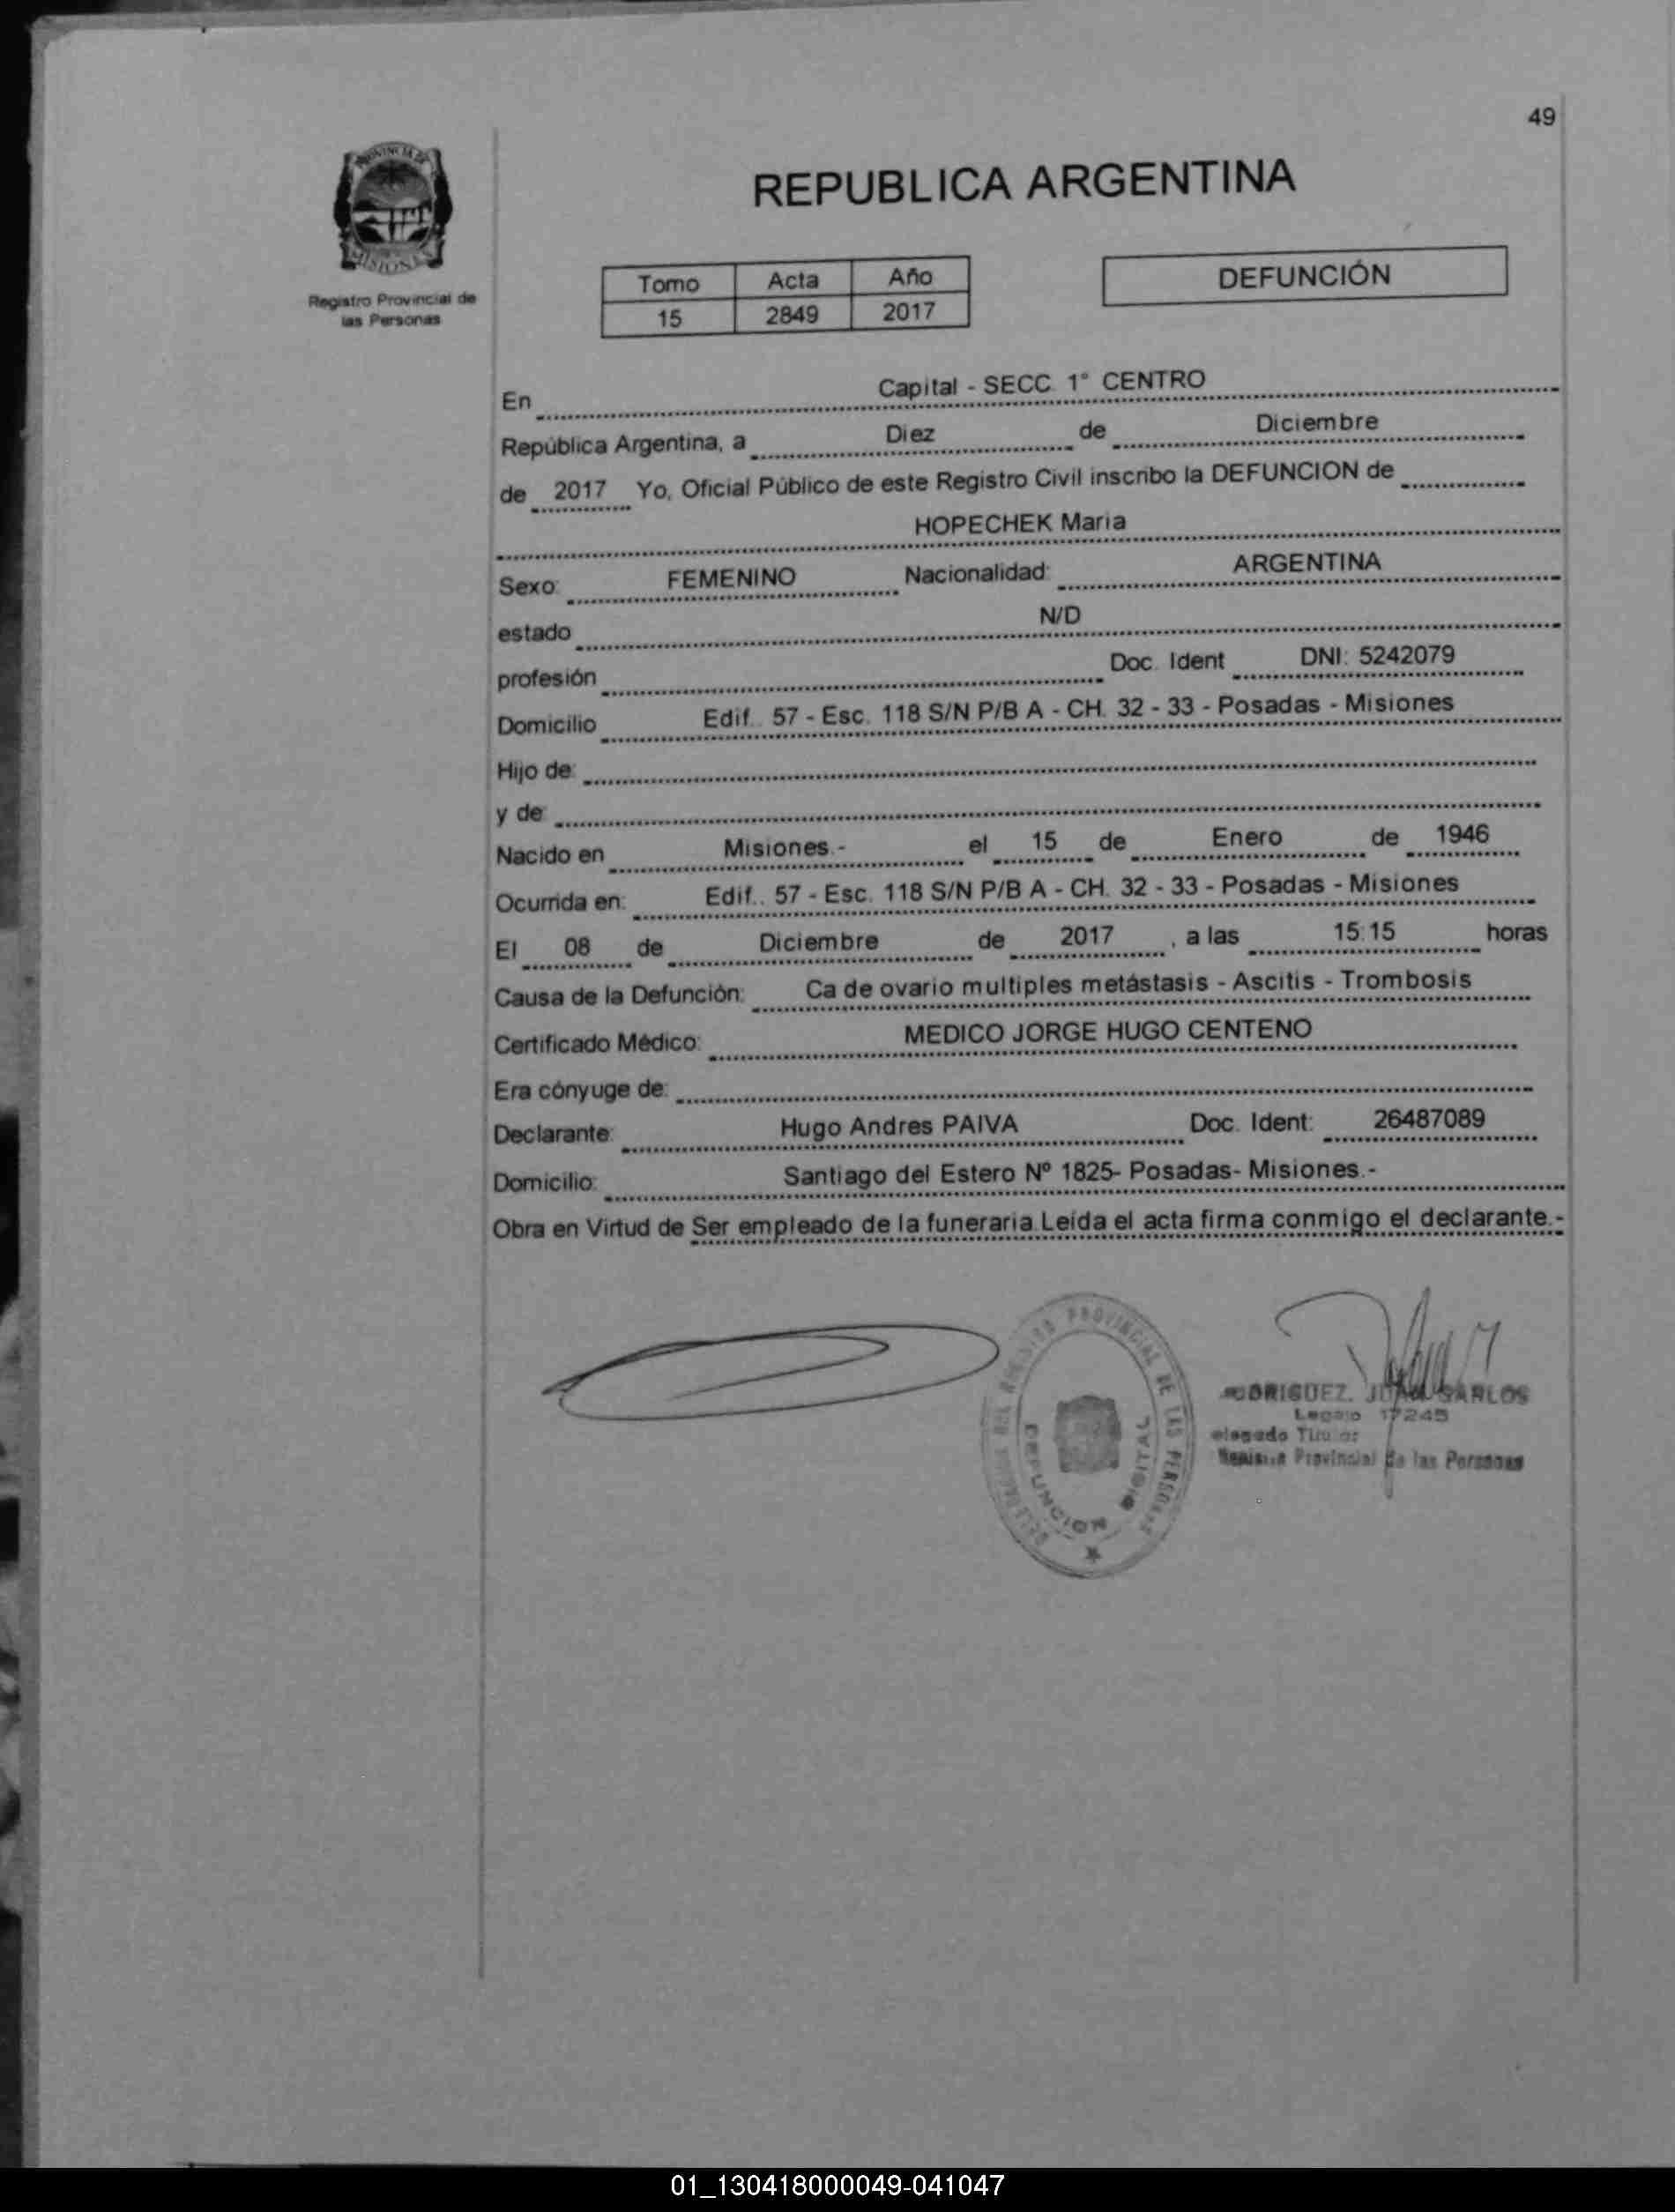 49
PROVINCIA DE
MISIONES
Registro Provincial de
las Personas
REPUBLICA ARGENTINA
Tomo Acta Año
15 2849 2017
DEFUNCIÓN
En Capital - SECC. 1° CENTRO
República Argentina, a Diez de Diciembre
de 2017 Yo, Oficial Público de este Registro Civil inscribo la DEFUNCION de
HOPECHEK Maria
Sexo: FEMENINO Nacionalidad: ARGENTINA
estado N/D
profesión Doc. Ident DNI: 5242079
Domicilio Edif.. 57 - Esc. 118 S/N P/B A - CH. 32 - 33 - Posadas - Misiones
Hijo de:
y de:
Nacido en Misiones.- el 15 de Enero de 1946
Ocurrida en: Edif.. 57 - Esc. 118 S/N P/B A - CH. 32 - 33 - Posadas - Misiones
El 08 de Diciembre de 2017 , a las 15:15 horas
Causa de la Defunción: Ca de ovario multiples metástasis - Ascitis - Trombosis
Certificado Médico: MEDICO JORGE HUGO CENTENO
Era cónyuge de:
Declarante: Hugo Andres PAIVA Doc. Ident: 26487089
Domicilio: Santiago del Estero Nº 1825- Posadas- Misiones.-
Obra en Virtud de Ser empleado de la funeraria.Leída el acta firma conmigo el declarante.-
PROVINCIAL DE LAS PERSONAS
DEFUNCION DIGITAL
CARLOS
Legajo 17245
Provincial de las Personas
01_130418000049-041047